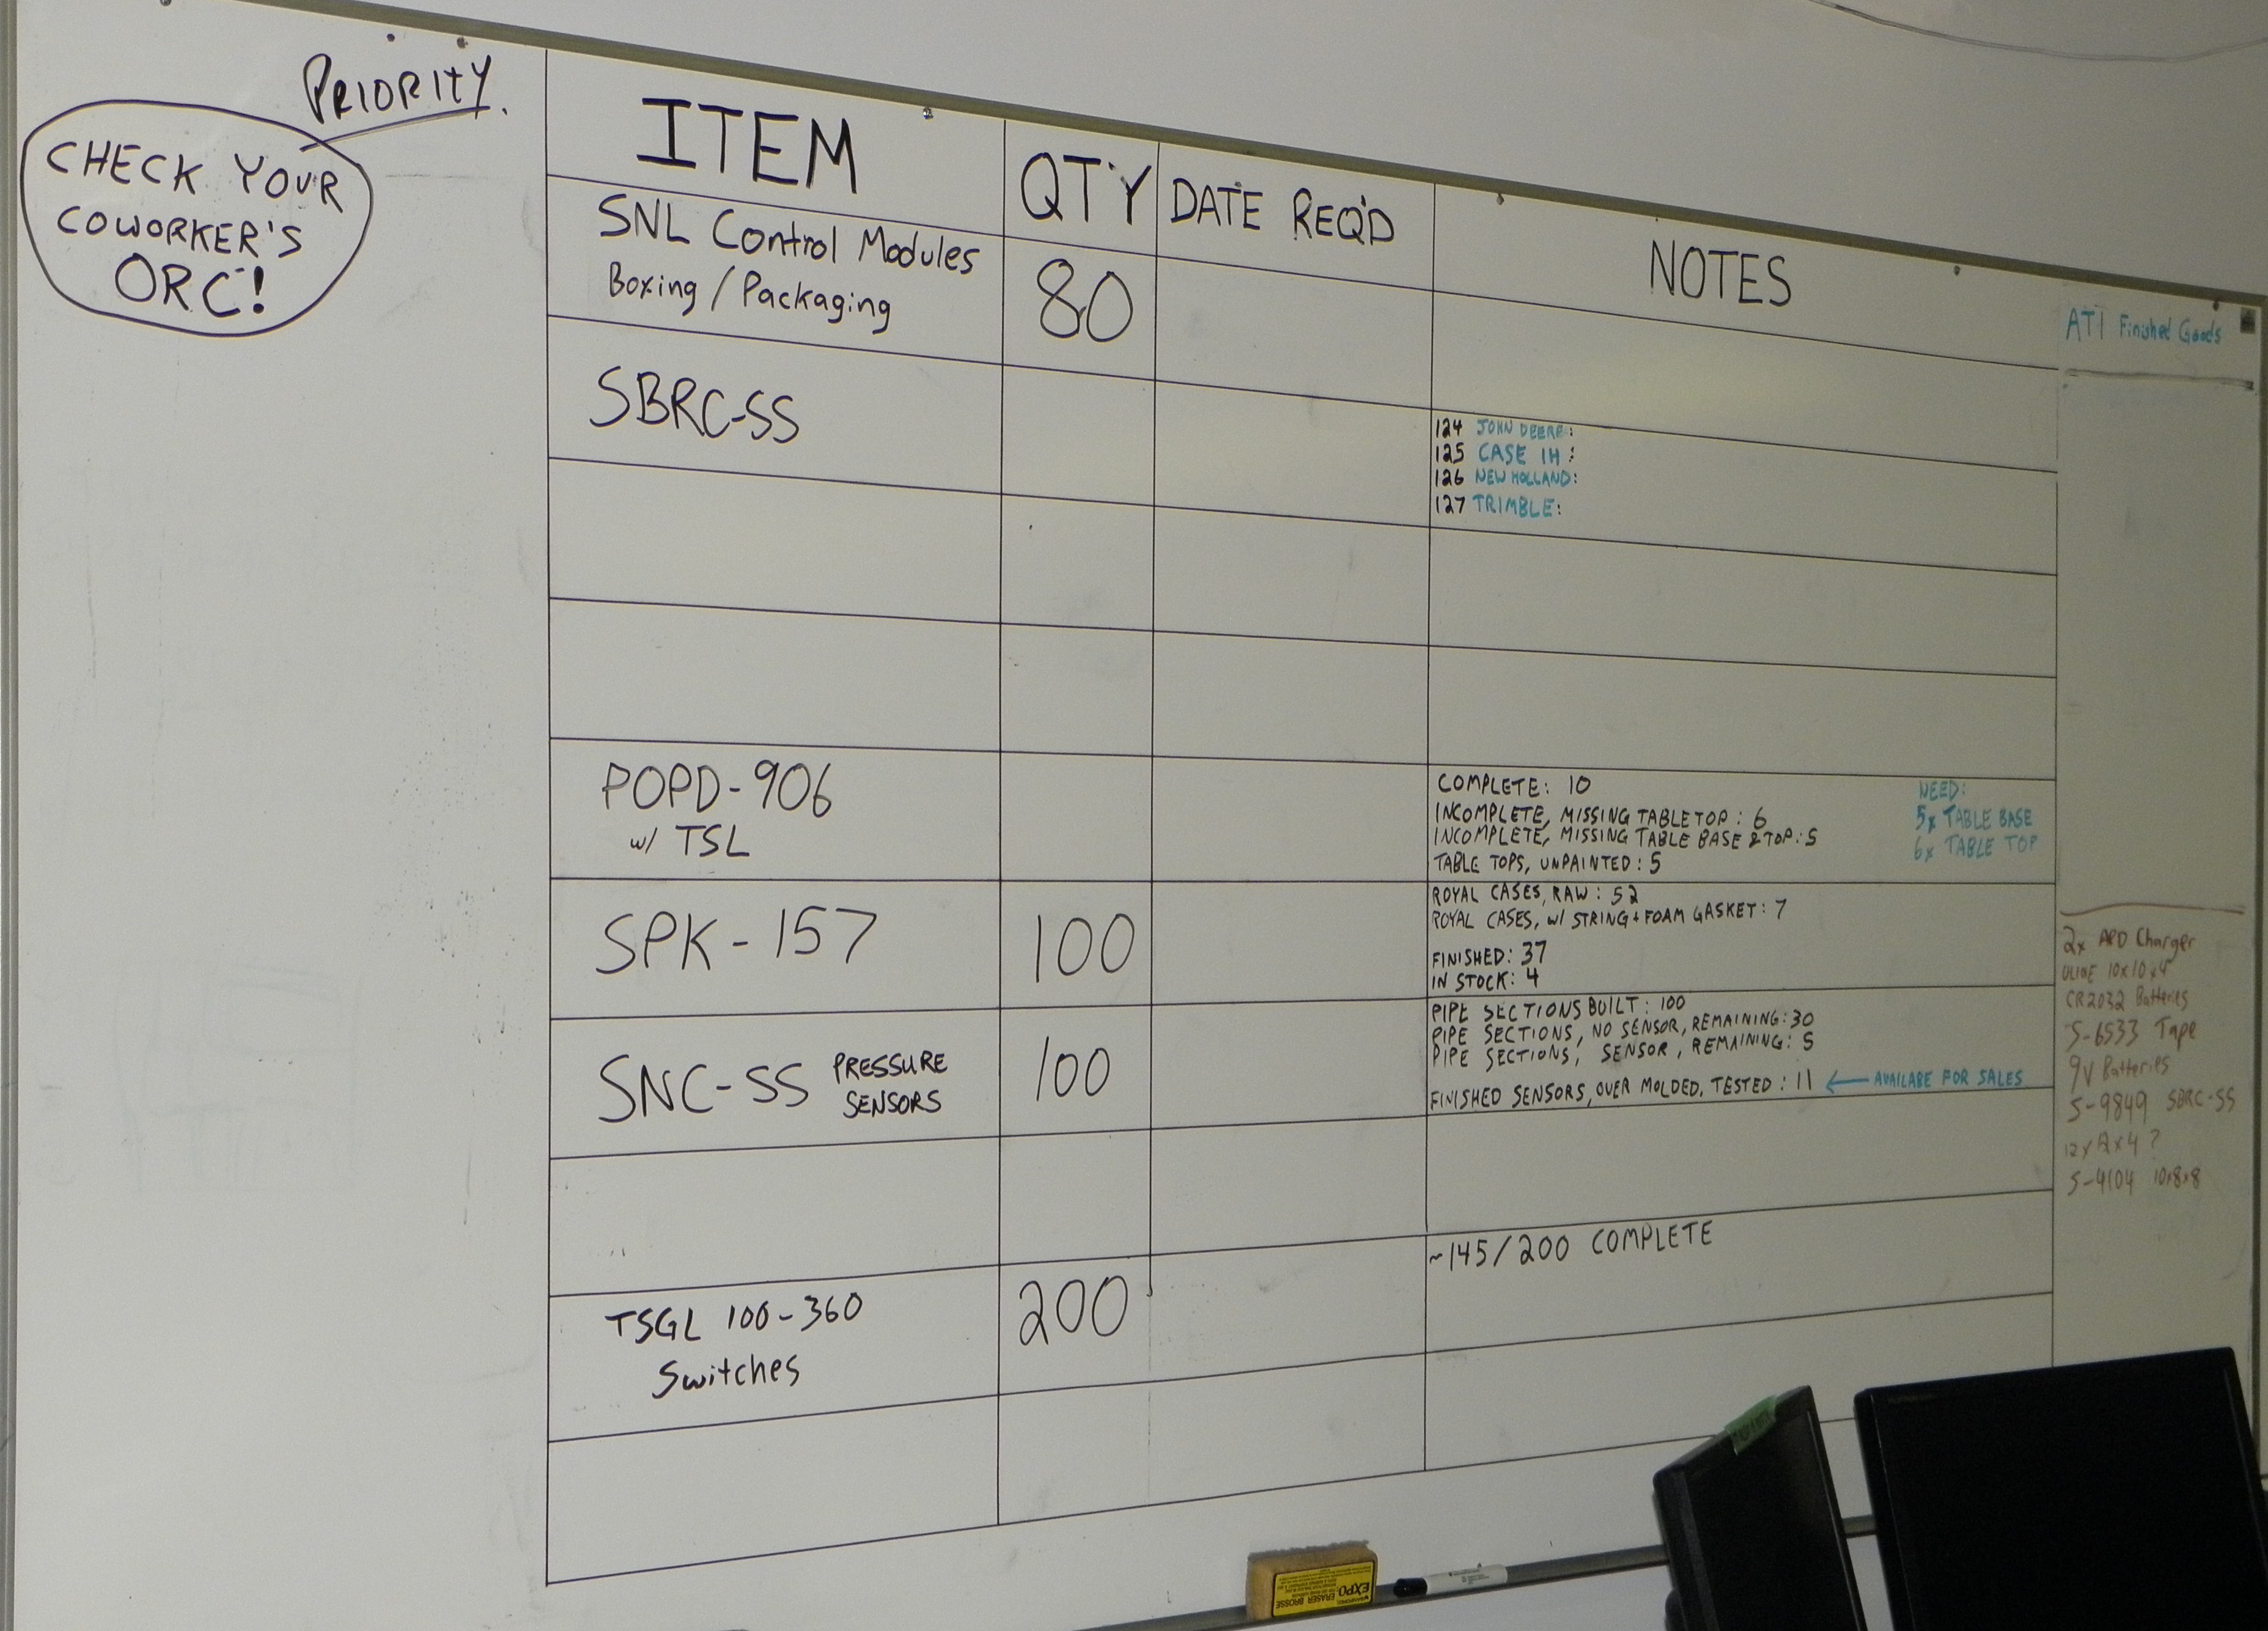 PRIORITY.
CHECK YOUR
COWORKER'S
ORC!
ITEM
QTY
DATE REQ'D
NOTES
SNL Control Modules
Boxing / Packaging
80
SBRC-SS
124 JOHN DEERE:
125 CASE IH:
126 NEW HOLLAND:
127 TRIMBLE:
POPD-906
w/ TSL
COMPLETE: 10
INCOMPLETE, MISSING TABLE TOP: 6
INCOMPLETE, MISSING TABLE BASE & TOP: 5
TABLE TOPS, UNPAINTED: 5
NEED:
5x TABLE BASE
6x TABLE TOP
SPK-157
100
ROYAL CASES, RAW: 52
ROYAL CASES, w/ STRING + FOAM GASKET: 7
FINISHED: 37
IN STOCK: 4
SNC-SS PRESSURE
SENSORS
100
PIPE SECTIONS BUILT: 100
PIPE SECTIONS, NO SENSOR, REMAINING: 30
PIPE SECTIONS, SENSOR, REMAINING: 5
FINISHED SENSORS, OVER MOLDED, TESTED: 11 ← AVAILABE FOR SALES
TSGL 100-360
Switches
200
~145/200 COMPLETE
ATI Finished Goods
2x APD Charger
ULINE 10x10x4
CR2032 Batteries
S-6533 Tape
9V Batteries
S-9849 SBRC-SS
S-4104 10x8x8
EXPO
ERASER BROSSE